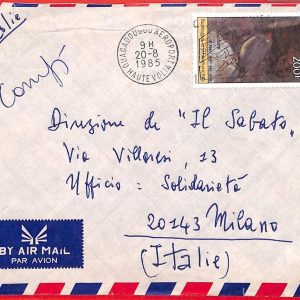 Italie)
OUAGADOUGOU AEROPORT
9H
20-8
1985
HAUTE VOLTA
200F
Comp
Direzione de "Il Sabato"
Via Villoresi, 13
Ufficio: Solidarietà
20143 Milano
(Italie)
BY AIR MAIL
PAR AVION